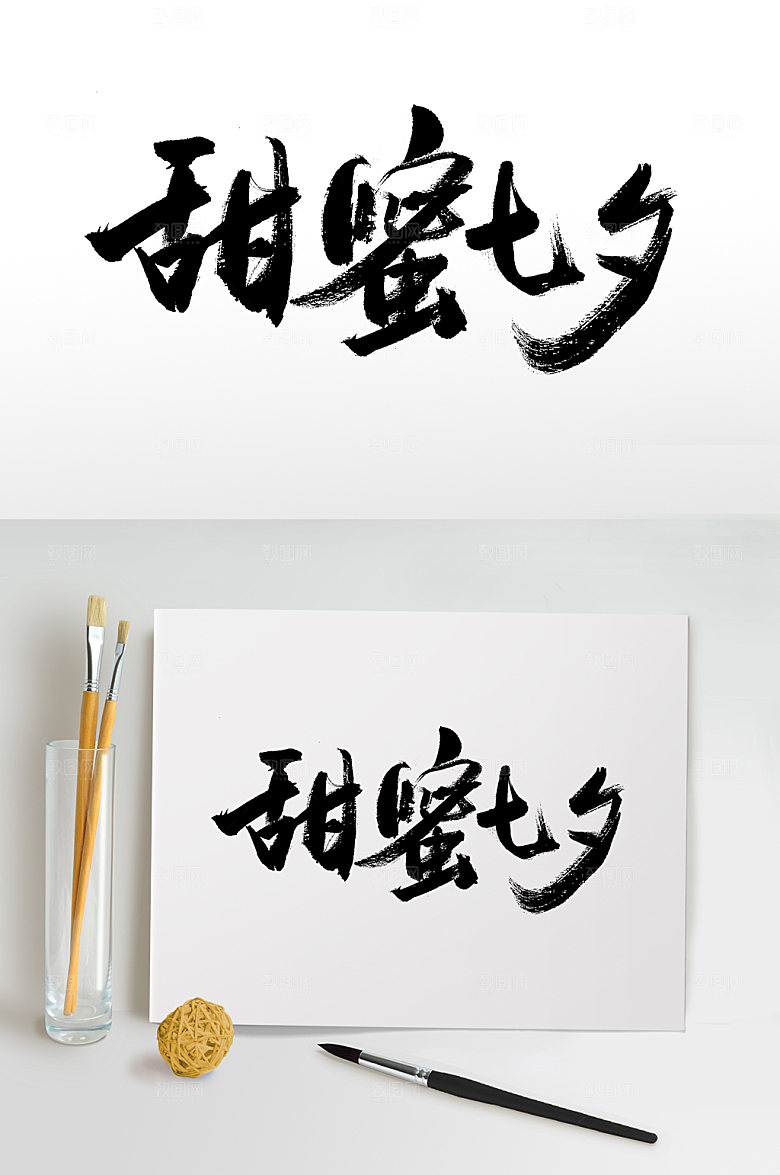 甜蜜七夕
甜蜜七夕